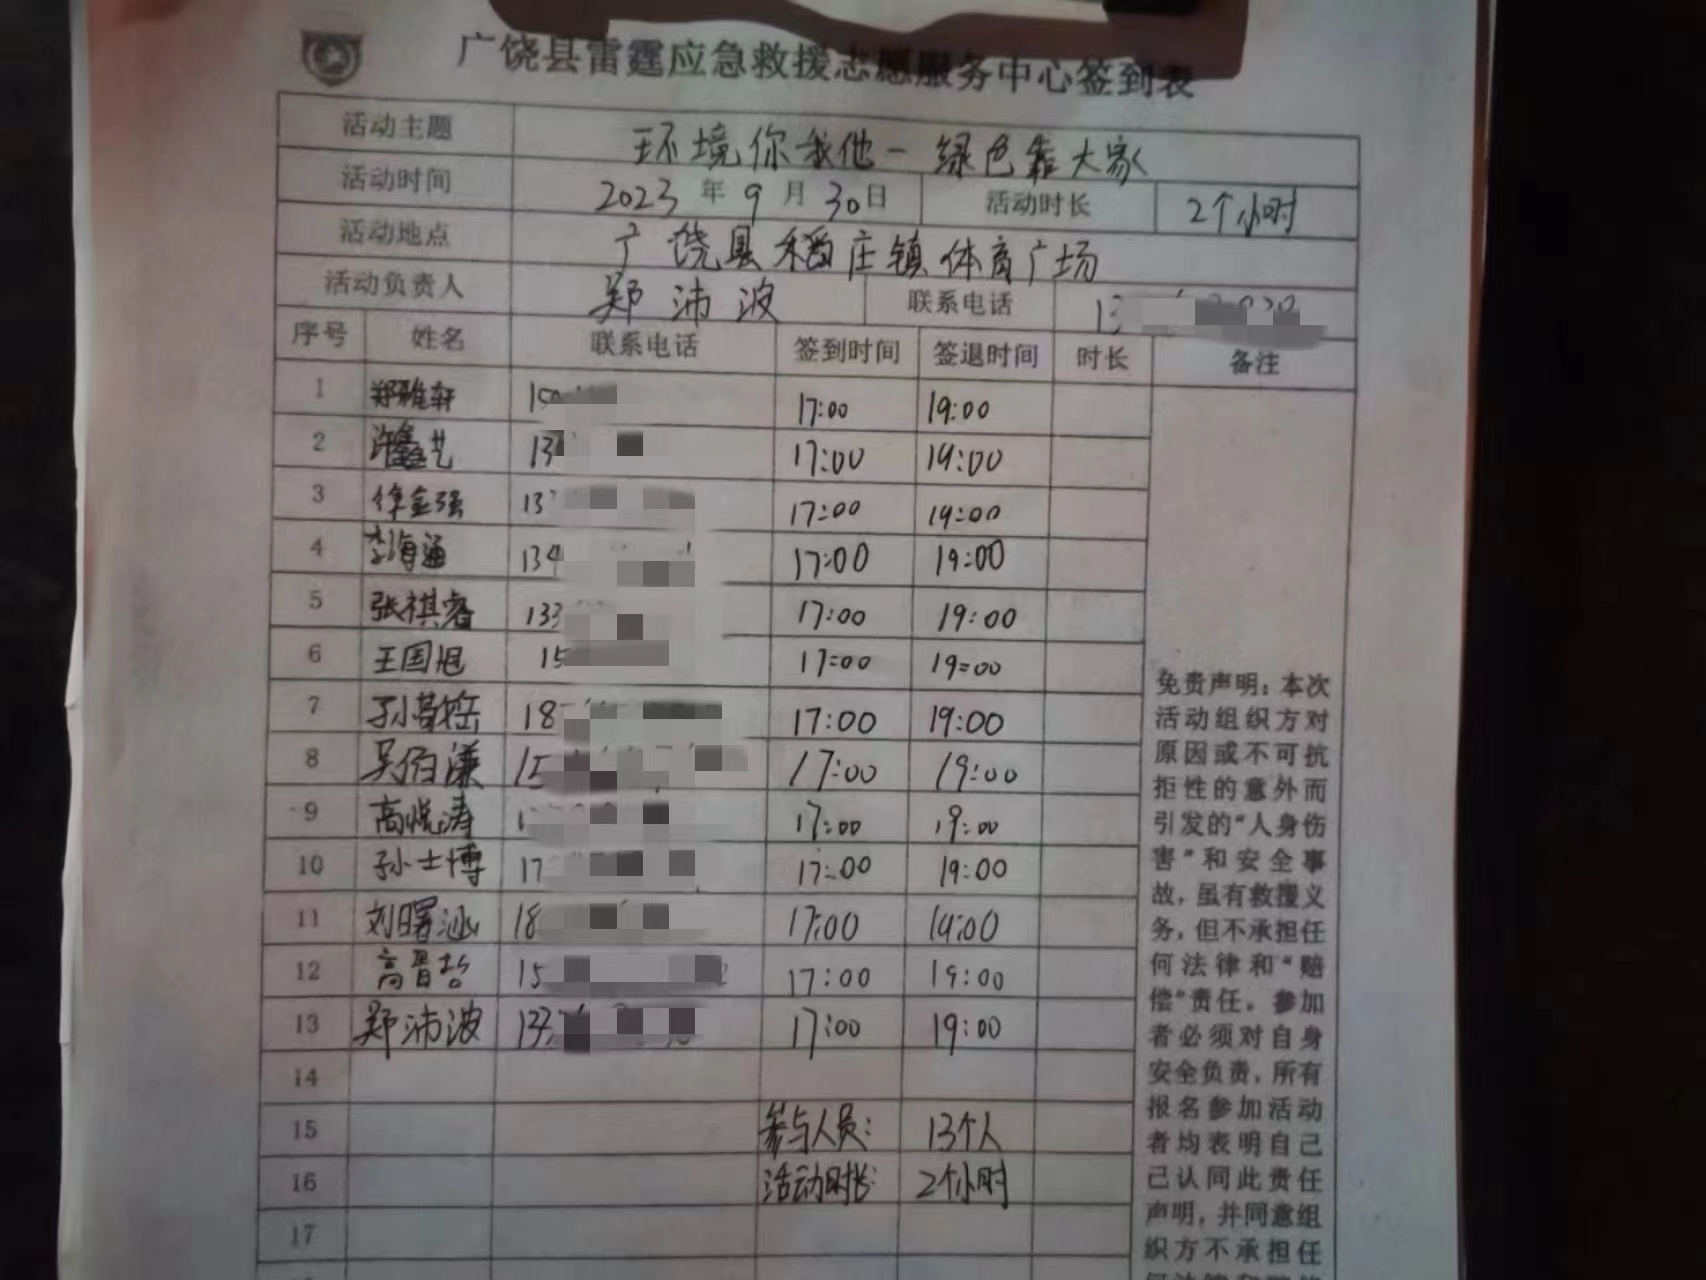 广饶县雷霆应急救援志愿服务中心签到表
活动主题 环境你我他-绿色靠大家
活动时间 2023年9月30日 活动时长 2个小时
活动地点 广饶县稻庄镇体育广场
活动负责人 郑沛波 联系电话 13
序号 姓名 联系电话 签到时间 签退时间 时长 备注
1 郑雅轩 150 17:00 19:00
2 许鑫艺 13 17:00 19:00
3 徐金强 13 17:00 19:00
4 李海通 134 17:00 19:00
5 张祺睿 133 17:00 19:00
6 王国旭 15 17:00 19:00
7 孙 18 17:00 19:00
8 吴佰谦 15 17:00 19:00
9 高悦涛 1 17:00 19:00
10 孙士博 17 17:00 19:00
11 刘曙涵 18 17:00 19:00
12 高晋哲 15 17:00 19:00
13 郑沛波 133 17:00 19:00
14
15 参与人员: 13个人
16 活动时长: 2个小时
17
免责声明：本次
活动组织方对
原因或不可抗
拒性的意外而
引发的“人身伤
害”和安全事
故，虽有救援义
务，但不承担任
何法律和“赔
偿”责任。参加
者必须对自身
安全负责，所有
报名参加活动
者均表明自己
已认同此责任
声明，并同意组
织方不承担任